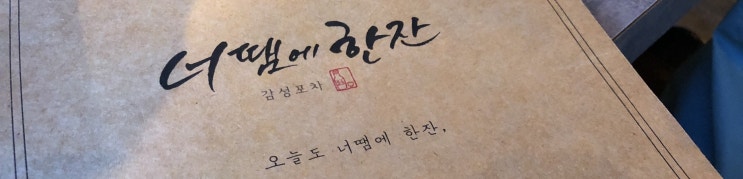 너땜에 한잔
감성포차
오늘도 너땜에 한잔,